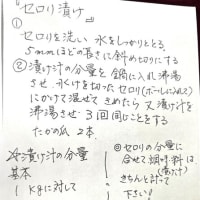 『セロリ漬け』
①
セロリを洗い 水をしっかりとる
5mmほどの長さに斜め切りにする
②漬け汁の分量を鍋に入れ沸騰
させ、火を切った
セロリ(ボールに入れて)
にかけて混ぜてさめたら又漬け汁を
沸騰させ・3回同じことをする
たかの爪 2本、
漬け汁の分量
基本
1kgに対して
◎セロリの分量に
合せて調味料は
(漬け汁)
きちんと計って
下さい!!